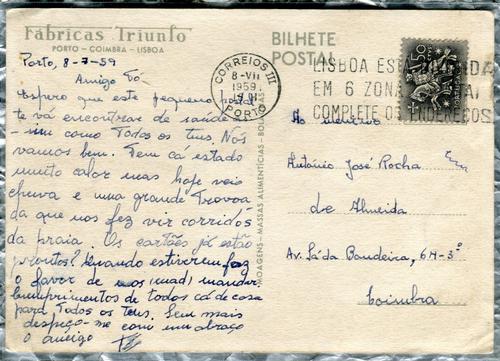 Fábricas Triunfo
PORTO - COIMBRA - LISBOA
BILHETE
POSTAL
Porto, 8-7-59
Amigo Tó
Espero que este pequeno postal
te vá encontrar de saúde as-
sim como todos os teus. Nós
vamos bem. Tem cá estado
muito calor mas hoje veio
chuva e uma grande trovoa
da que nos fez vir corridos
da praia. Os cartões já estão
prontos? Quando estiverem faz
o favor de nos mandar
Cumprimentos de todos cá de casa
para todos os teus. Sem mais
despeço-me com um abraço
o amigo
MOAGENS - MASSAS ALIMENTÍCIAS - BOLACHAS
CORREIOS III
8-VII
1959
PORTO
LISBOA ESTÁ
EM 6 ZONAS
COMPLETE OS ENDEREÇOS
Ao menino
António José Rocha
de Almeida
Av. Sá da Bandeira, 64-3º
Coimbra